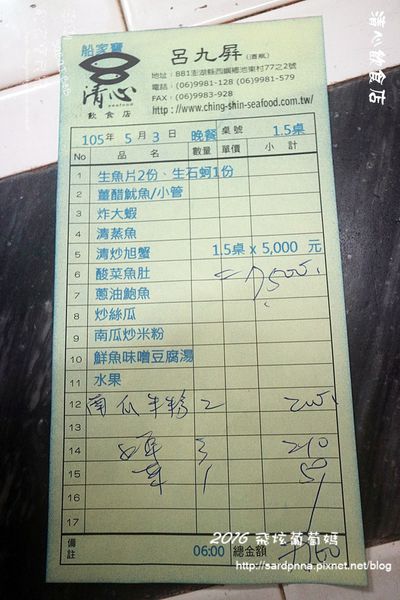 船家寶
清心
seafood
飲食店
呂九屏(酒瓶)
地址：881澎湖縣西嶼鄉池東村77之2號
電話：(06)9981-128 (06)9981-579
FAX：(06)9983-928
http://www.ching-shin-seafood.com.tw/
清心飲食店
105年 5月 3日 晚餐 桌號 1.5桌
No 品名 數量 單價 小計
1 生魚片2份、生石蚵1份
2 薑醋魷魚/小管
3 炸大蝦
4 清蒸魚
5 清炒旭蟹 1.5桌 x 5,000 元
6 酸菜魚肚
7 蔥油鮑魚
8 炒絲瓜
9 南瓜炒米粉
10 鮮魚味噌豆腐湯
11 水果
12 南瓜米粉 2
14 3 210
15 1 50
16
17
備註 06:00 總金額
2016 飛炫葡萄媽
http://sardpnna.pixnet.net/blog